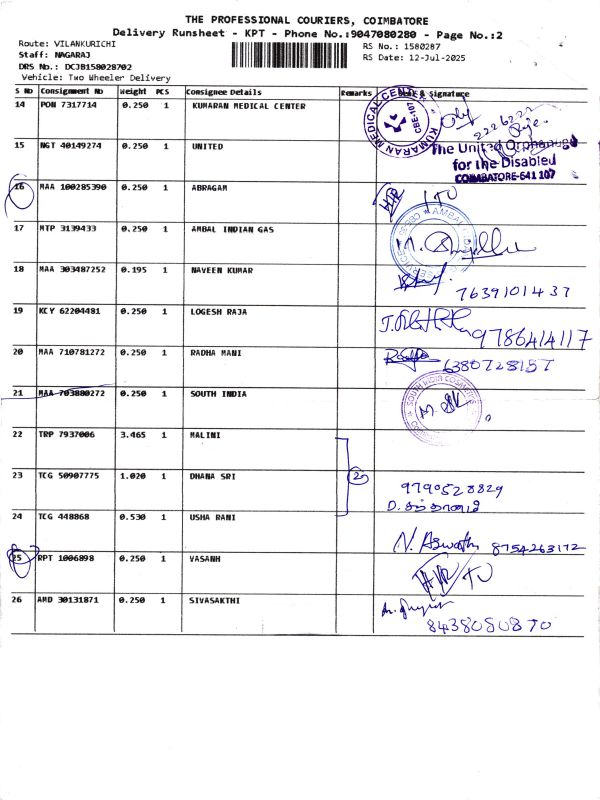 THE PROFESSIONAL COURIERS, COIMBATORE
Delivery Runsheet - KPT - Phone No.:9047080280 - Page No.:2
Route: VILANKURICHI
Staff: NAGARAJ
DRS No.: DCJB158028702
Vehicle: Two Wheeler Delivery
RS No.: 1580287
RS Date: 12-Jul-2025
S No Consignment No Weight PCS Consignee Details Remarks & Signature
14 PON 7317714 0.250 1 KUMARAN MEDICAL CENTER
KUMARAN MEDICAL CENT CBE-107
15 NGT 40149274 0.250 1 UNITED
The United Orphanage
for the Disabled
COIMBATORE-641 107
16 MAA 100285390 0.250 1 ABRAGAM
17 MTP 3139433 0.250 1 AMBAL INDIAN GAS
AMBAL
SERVICE
18 MAA 303487252 0.195 1 NAVEEN KUMAR
7639101437
19 KCY 62204481 0.250 1 LOGESH RAJA
9786414117
20 MAA 710781272 0.250 1 RADHA MANI
6380728157
21 MAA 703880272 0.250 1 SOUTH INDIA
SOUTH INDIA
22 TRP 7937006 3.465 1 MALINI
23 TCG 50907775 1.020 1 DHANA SRI
2
9790528829
24 TCG 448868 0.530 1 USHA RANI
N. Aswath 8754263172
25 RPT 1006898 0.250 1 VASANH
26 AMD 30131871 0.250 1 SIVASAKTHI
8438050870